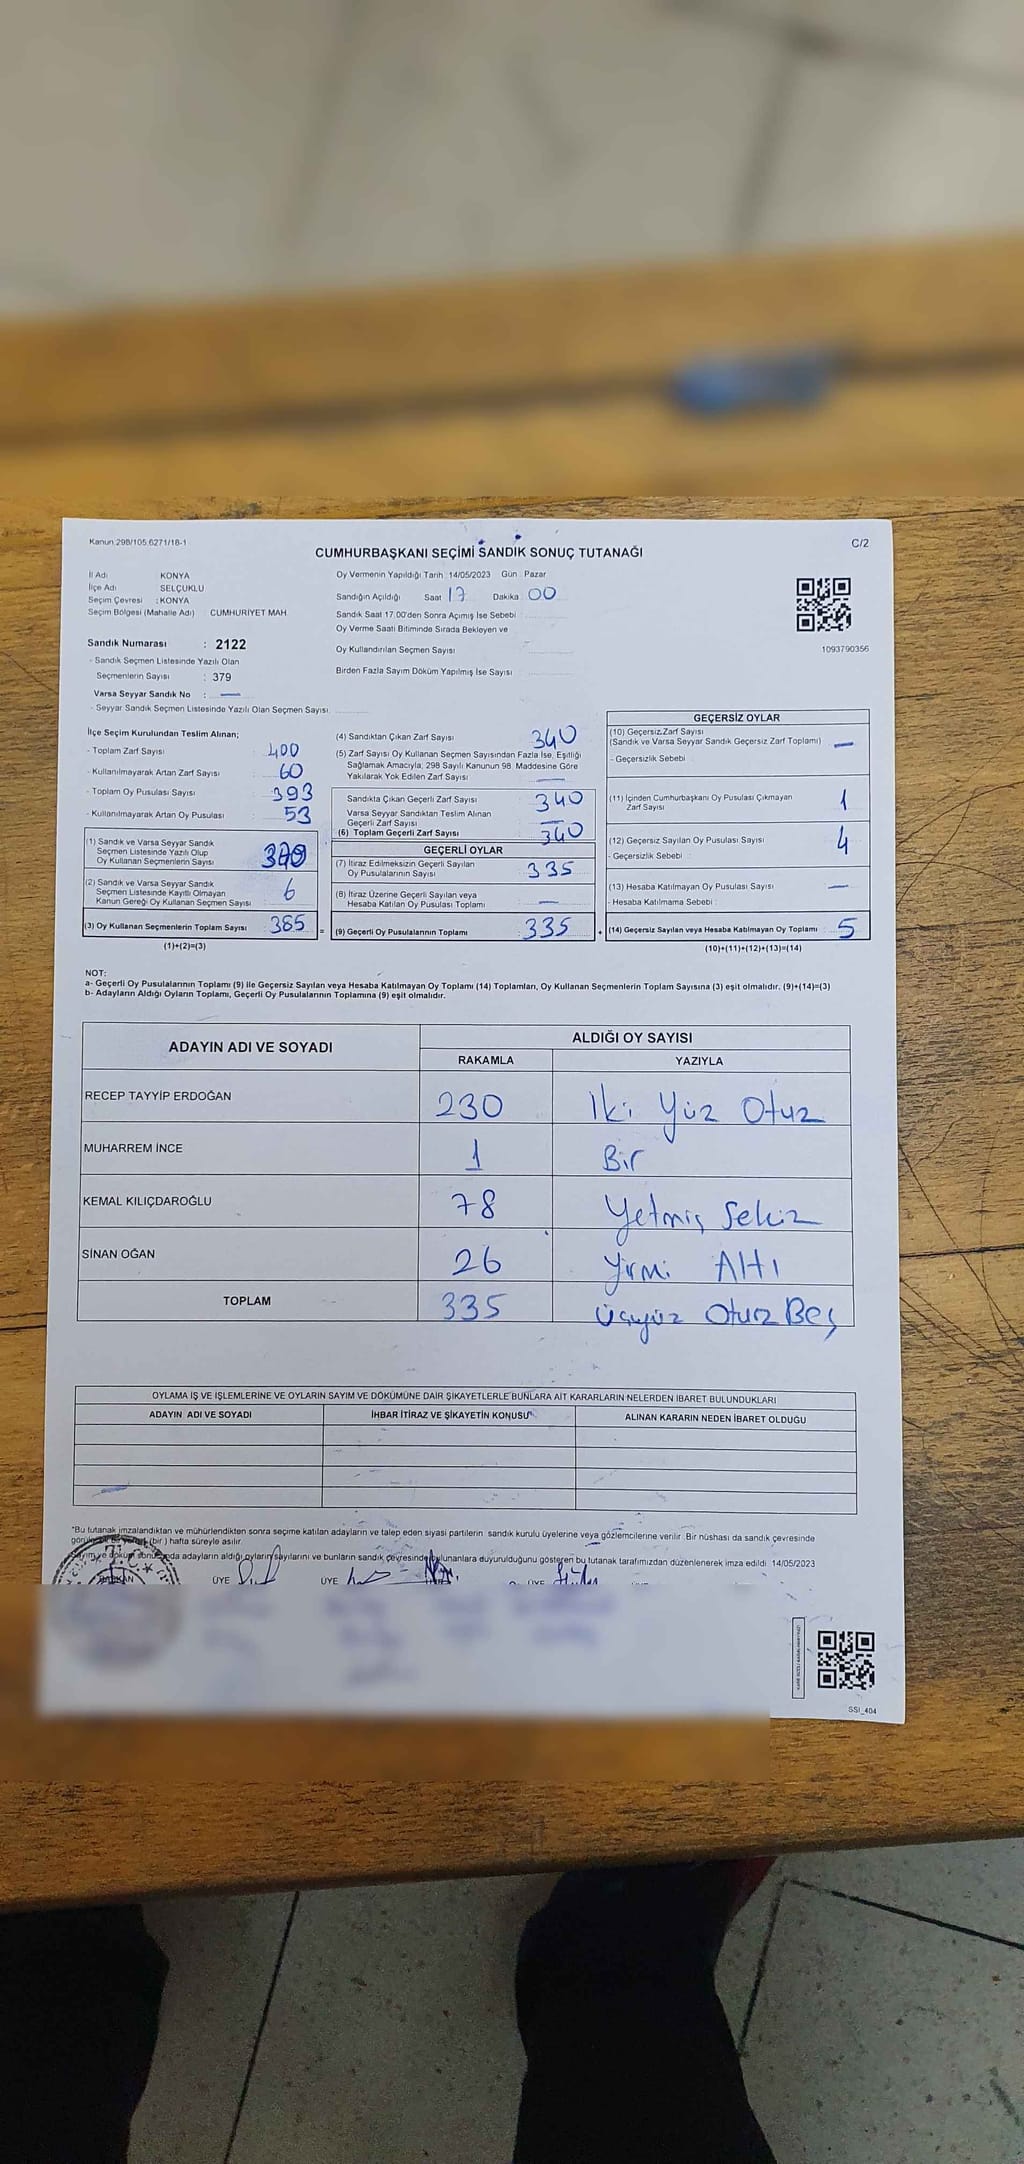 Kanun 298/105,6271/18-1
C/2
CUMHURBAŞKANI SEÇİMİ SANDIK SONUÇ TUTANAĞI
İl Adı KONYA
İlçe Adı SELÇUKLU
Seçim Çevresi : KONYA
Seçim Bölgesi (Mahalle Adı) CUMHURİYET MAH.
Sandık Numarası : 2122
- Sandık Seçmen Listesinde Yazılı Olan
Seçmenlerin Sayısı : 379
Varsa Seyyar Sandık No : —
- Seyyar Sandık Seçmen Listesinde Yazılı Olan Seçmen Sayısı
Oy Vermenin Yapıldığı Tarih 14/05/2023 Gün Pazar
Sandığın Açıldığı Saat 17 Dakika 00
Sandık Saat 17:00'den Sonra Açımış İse Sebebi
Oy Verme Saati Bitiminde Sırada Bekleyen ve
Oy Kullandırılan Seçmen Sayısı
Birden Fazla Sayım Döküm Yapılmış İse Sayısı
1093790356
İlçe Seçim Kurulundan Teslim Alınan;
- Toplam Zarf Sayısı 400
- Kullanılmayarak Artan Zarf Sayısı 60
- Toplam Oy Pusulası Sayısı 393
- Kullanılmayarak Artan Oy Pusulası 53
(1) Sandık ve Varsa Seyyar Sandık
Seçmen Listesinde Yazılı Olup
Oy Kullanan Seçmenlerin Sayısı
(2) Sandık ve Varsa Seyyar Sandık
Seçmen Listesinde Kayıtlı Olmayan
Kanun Gereği Oy Kullanan Seçmen Sayısı 6
(3) Oy Kullanan Seçmenlerin Toplam Sayısı 385 =
(1)+(2)=(3)
(4) Sandıktan Çıkan Zarf Sayısı 340
(5) Zarf Sayısı Oy Kullanan Seçmen Sayısından Fazla İse, Eşitliği
Sağlamak Amacıyla, 298 Sayılı Kanunun 98. Maddesine Göre
Yakılarak Yok Edilen Zarf Sayısı —
Sandıkta Çıkan Geçerli Zarf Sayısı 340
Varsa Seyyar Sandıktan Teslim Alınan
Geçerli Zarf Sayısı —
(6) Toplam Geçerli Zarf Sayısı 340
GEÇERLİ OYLAR
(7) İtiraz Edilmeksizin Geçerli Sayılan
Oy Pusulalarının Sayısı 335
(8) İtiraz Üzerine Geçerli Sayılan veya
Hesaba Katılan Oy Pusulası Toplamı —
(9) Geçerli Oy Pusulalarının Toplamı 335 +
GEÇERSİZ OYLAR
(10) Geçersiz Zarf Sayısı
(Sandık ve Varsa Seyyar Sandık Geçersiz Zarf Toplamı) —
- Geçersizlik Sebebi
(11) İçinden Cumhurbaşkanı Oy Pusulası Çıkmayan
Zarf Sayısı 1
(12) Geçersiz Sayılan Oy Pusulası Sayısı 4
- Geçersizlik Sebebi
(13) Hesaba Katılmayan Oy Pusulası Sayısı —
- Hesaba Katılmama Sebebi
(14) Geçersiz Sayılan veya Hesaba Katılmayan Oy Toplamı 5
(10)+(11)+(12)+(13)=(14)
NOT:
a- Geçerli Oy Pusulalarının Toplamı (9) ile Geçersiz Sayılan veya Hesaba Katılmayan Oy Toplamı (14) Toplamları, Oy Kullanan Seçmenlerin Toplam Sayısına (3) eşit olmalıdır. (9)+(14)=(3)
b- Adayların Aldığı Oyların Toplamı, Geçerli Oy Pusulalarının Toplamına (9) eşit olmalıdır.
ADAYIN ADI VE SOYADI ALDIĞI OY SAYISI
RAKAMLA YAZIYLA
RECEP TAYYİP ERDOĞAN 230 İki Yüz Otuz
MUHARREM İNCE 1 Bir
KEMAL KILIÇDAROĞLU 78 Yetmiş Sekiz
SİNAN OĞAN 26 Yirmi Altı
TOPLAM 335 Üçyüz Otuz Beş
OYLAMA İŞ VE İŞLEMLERİNE VE OYLARIN SAYIM VE DÖKÜMÜNE DAİR ŞİKAYETLERLE BUNLARA AİT KARARLARIN NELERDEN İBARET BULUNDUKLARI
ADAYIN ADI VE SOYADI İHBAR İTİRAZ VE ŞİKAYETİN KONUSU ALINAN KARARIN NEDEN İBARET OLDUĞU
*Bu tutanak imzalandıktan ve mühürlendikten sonra seçime katılan adayların ve talep eden siyasi partilerin sandık kurulu üyelerine veya gözlemcilerine verilir. Bir nüshası da sandık çevresinde
(bir) hafta süreyle asılır.
adayların aldığı oyların sayılarını ve bunların sandık çevresinde bulunanlara duyurulduğunu gösteren bu tutanak tarafımızdan düzenlenerek imza edildi. 14/05/2023
T.C.
BAŞKAN ÜYE ÜYE ÜYE
SSI_404